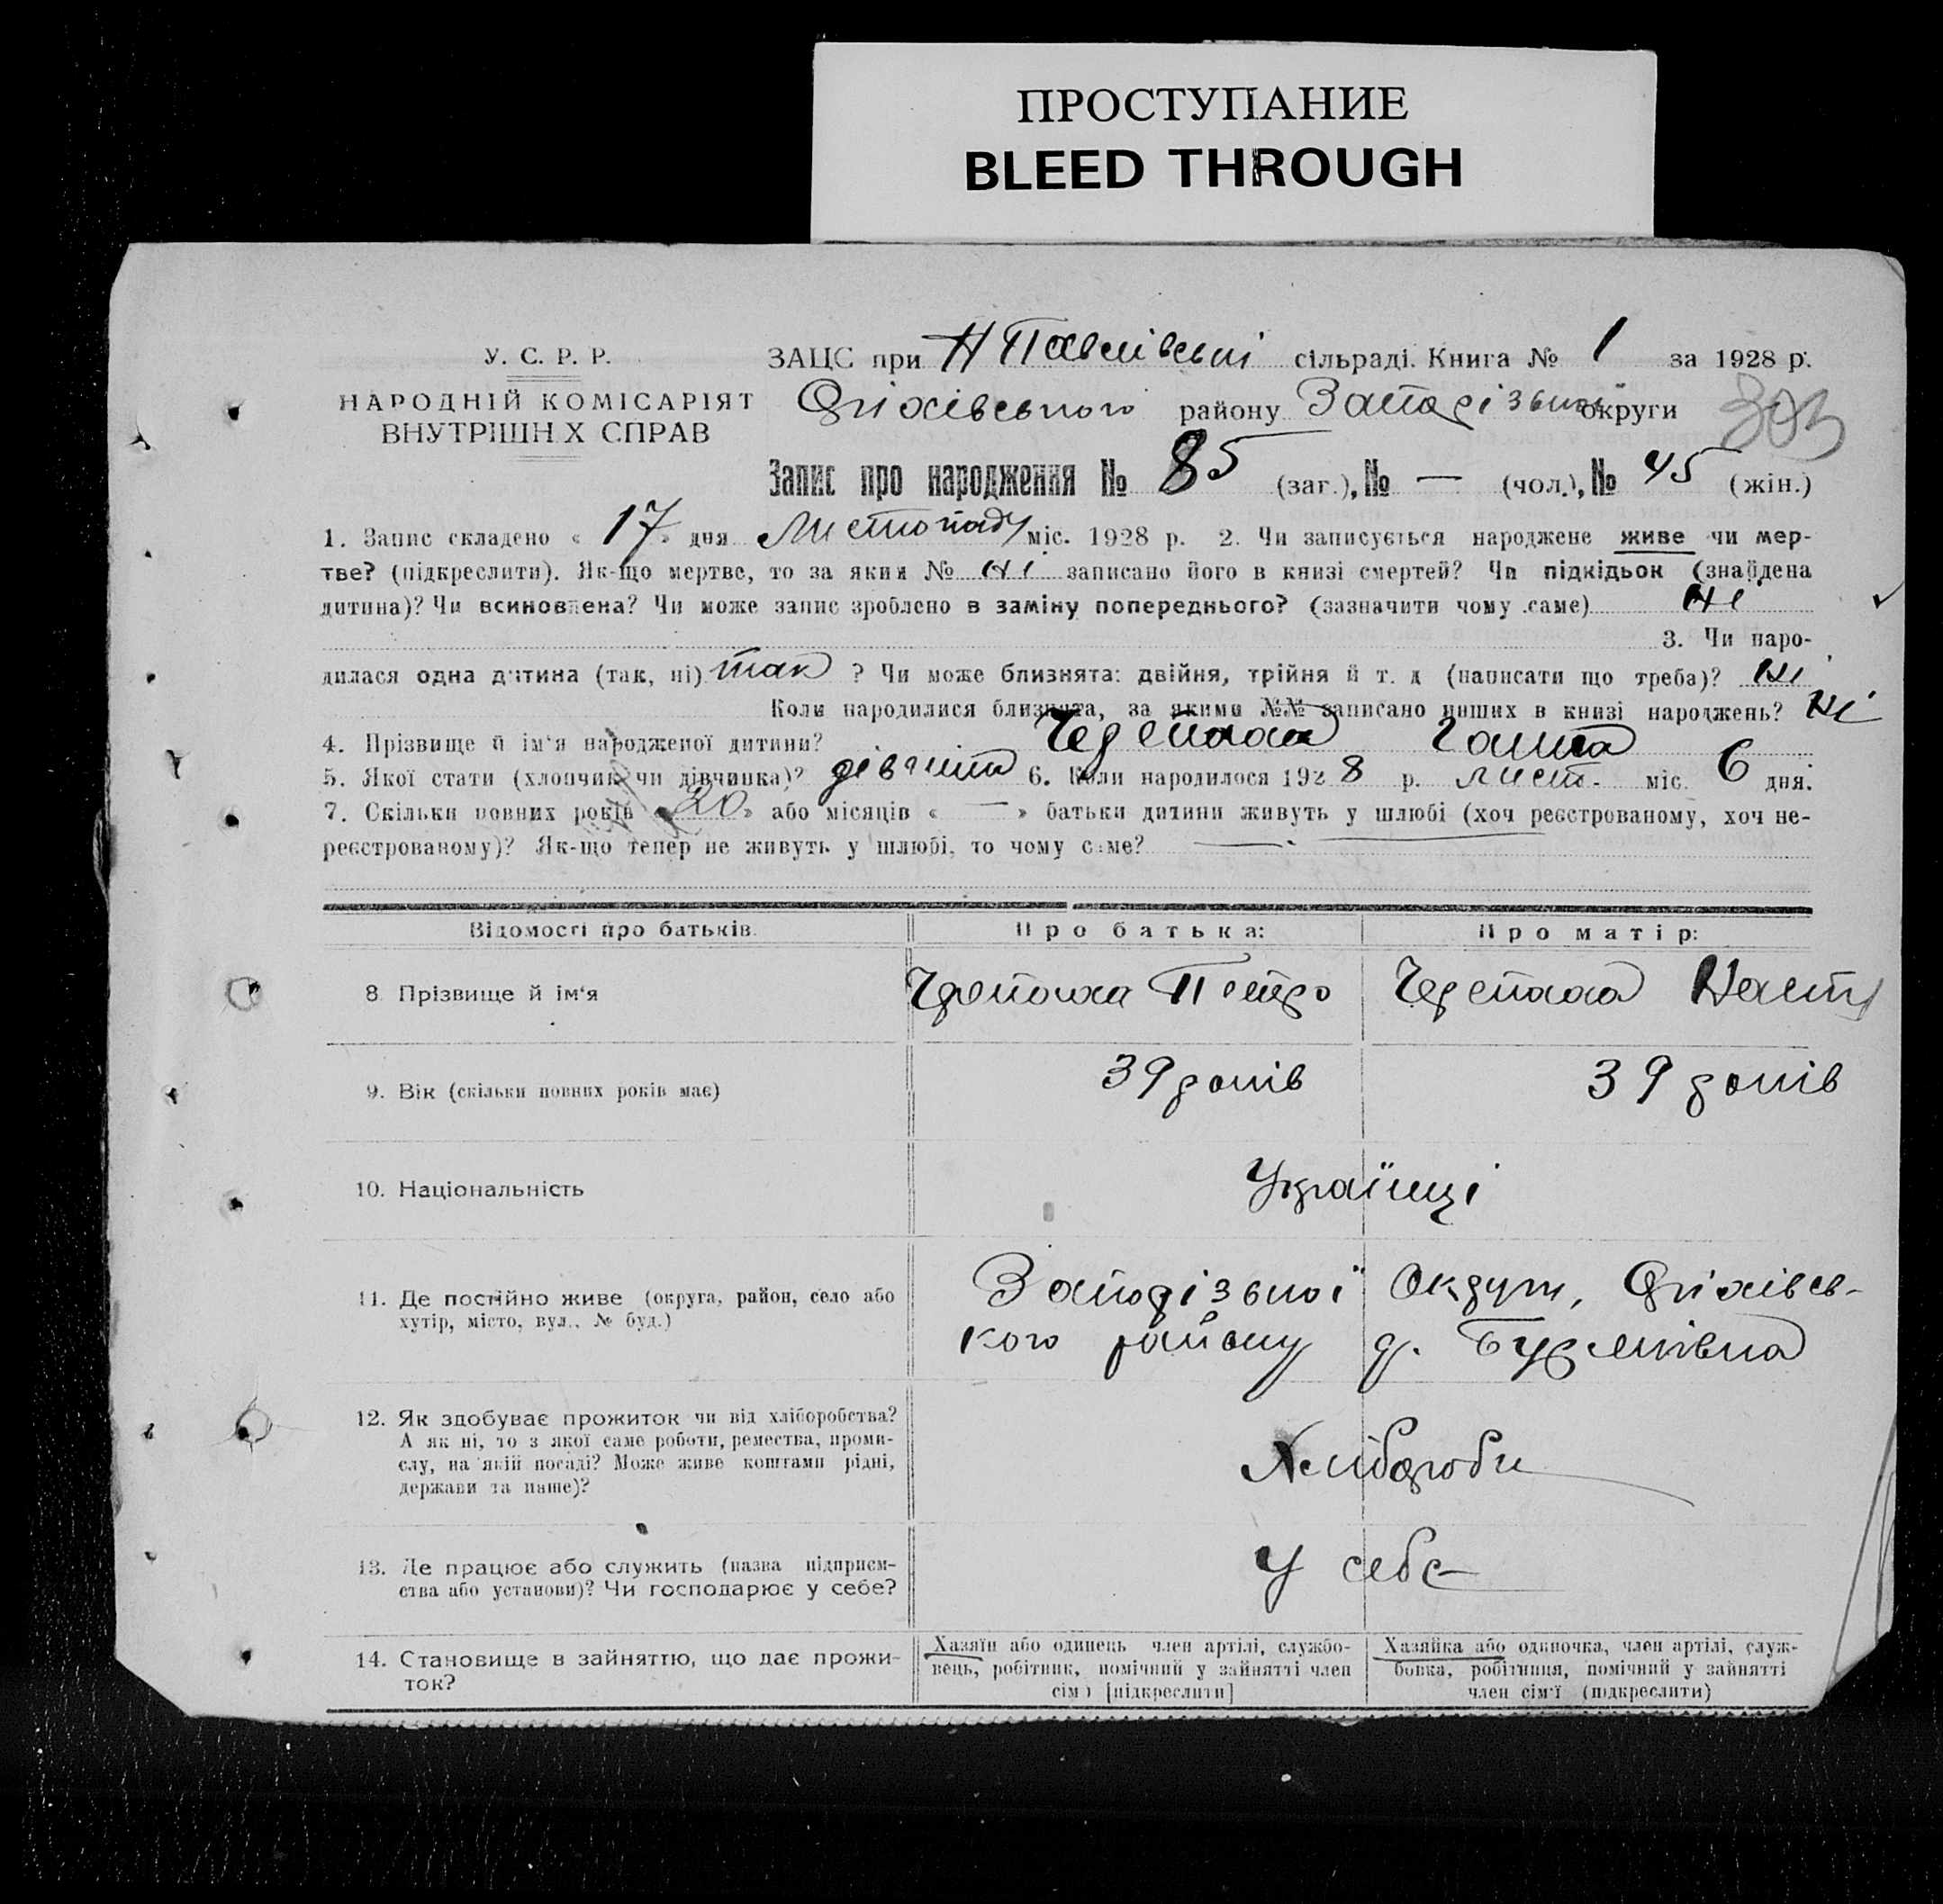 ПРОСТУПАНИЕ
BLEED THROUGH
У. С. Р. Р.
НАРОДНІЙ КОМІСАРІЯТ
ВНУТРІШН Х СПРАВ
ЗАЦС при Н Павлівські сільраді. Книга № 1 за 1928 р.
Оріхівського району Запорізької округи
303
Запис про народження № 85 (заг.), № — (чол.), № 45 (жін.)
1. Запис складено « 17 » дня Листопаду міс. 1928 р. 2. Чи записується народжене живе чи мер-
тве? (підкреслити). Як-що мертве, то за яким № ні записано його в книзі смертей? Чи підкідьок (знайдена
дитина)? Чи всиновлена? Чи може запис зроблено в заміну попереднього? (зазначити чому саме) ні
3. Чи наро-
дилася одна дитина (так, ні) так ? Чи може близнята: двійня, трійня й т. д (написати що треба)? ні
Коли народилися близнята, за якими №№ записано инших в книзі народжень? ні
4. Прізвище й ім'я народженої дитини? Черепаха Ганна
5. Якої стати (хлопчик чи дівчинка)? дівчина 6. Коли народилося 1928 р. лист. міс. 6 дня.
7. Скільки повних років « 20 » або місяців « — » батьки дитини живуть у шлюбі (хоч реєстрованому, хоч не-
реєстрованому)? Як-що тепер не живуть у шлюбі, то чому саме? —
Відомості про батьків. Про батька: Про матір:
8. Прізвище й ім'я Черепаха Петро Черепаха Наст
9. Вік (скільки повних років має) 39 років 39 років
10. Національність Українці
11. Де постійно живе (округа, район, село або
хутір, місто, вул., № буд.)
Запорізької Округи, Оріхівсь-
кого району
12. Як здобуває прожиток чи від хліборобства?
А як ні, то з якої саме роботи, ремества, проми-
слу, на якій посаді? Може живе коштами рідні,
держави та инше)?
Хлібороби
13. Де працює або служить (назва підприєм-
ства або установи)? Чи господарює у себе?
У себе
14. Становище в зайняттю, що дає прожи-
ток?
Хазяїн або одинець член артілі, службо-
вець, робітник, помічний у зайнятті член
сім ї [підкреслити]
Хазяйка або одиночка, член артілі, служ-
бовка, робітниця, помічний у зайнятті
член сім'ї (підкреслити)